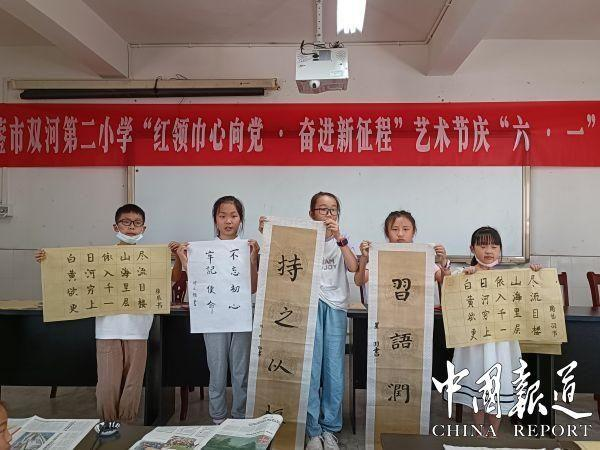 蓥市双河第二小学“红领巾心向党 · 奋进新征程”艺术节庆“六 · 一”
白日依山尽
黄河入海流
欲穷千里目
更上一层楼
不忘初心
牢记使命
持之以
習語潤
白日依山尽
黄河入海流
欲穷千里目
更上一层楼
中國報道
CHINA REPORT